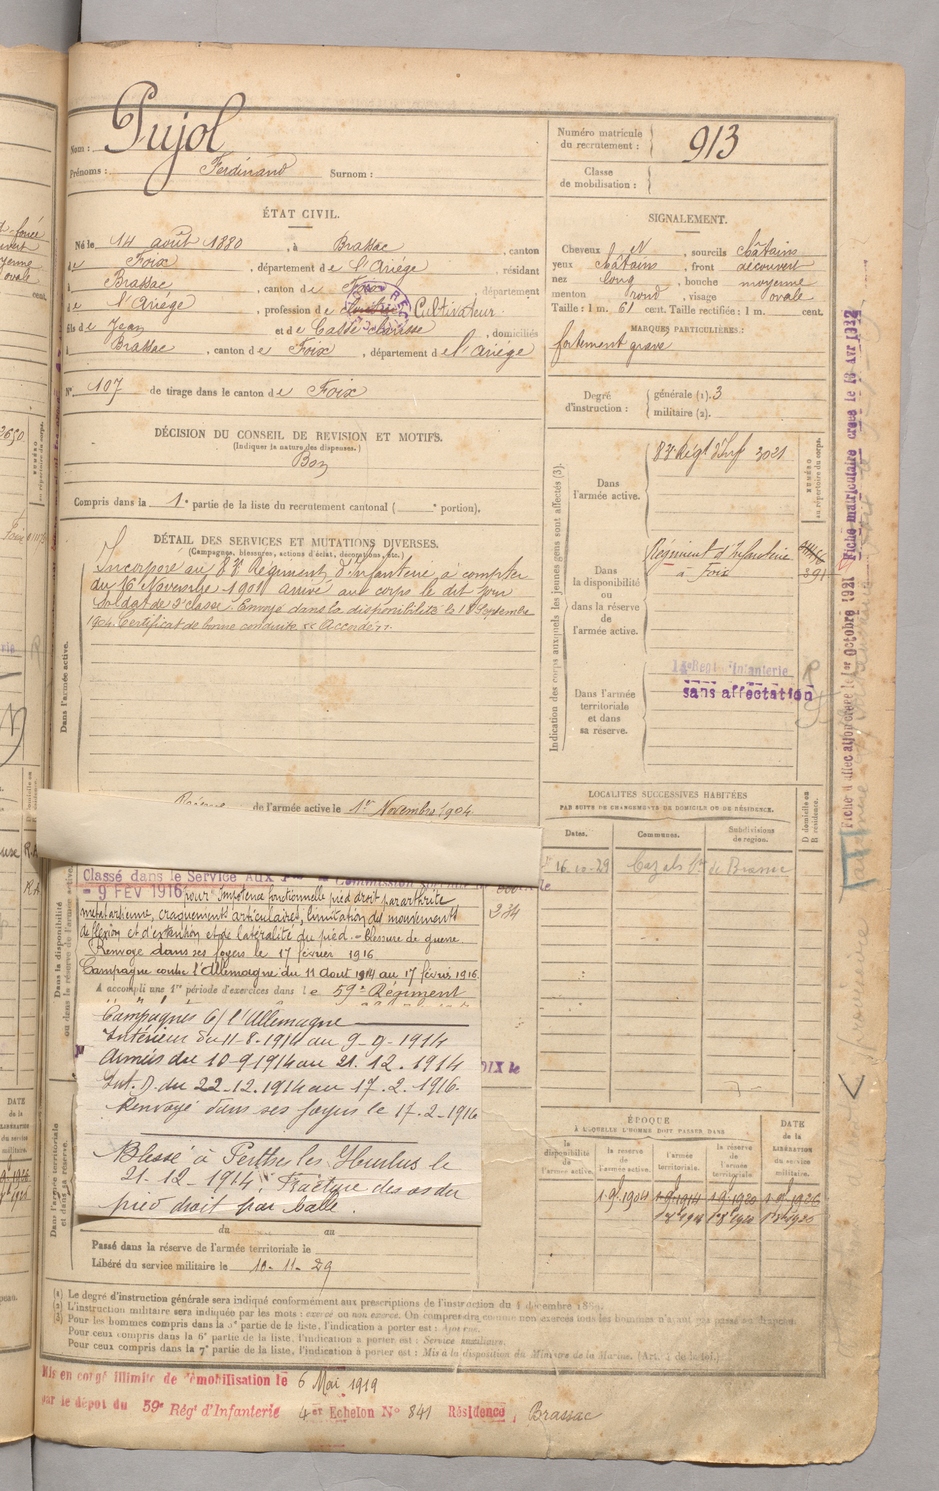 Nom : Pujol
Prénoms : Ferdinand Surnom :
Numéro matricule
du recrutement : 913
Classe
de mobilisation :
ÉTAT CIVIL.
Né le 14 août 1880, à Brassac, canton
de Foix, département de l'Ariège, résidant
à Brassac, canton de Foix, département
de l'Ariège, profession de Cultivateur
fils de Jean et de Casse, domiciliés
à Brassac, canton de Foix, département de l'Ariège
N° 107 de tirage dans le canton de Foix
SIGNALEMENT.
Cheveux N, sourcils châtains
yeux châtains, front découvert
nez long, bouche moyenne
menton rond, visage ovale
Taille : 1 m. 61 cent. Taille rectifiée : 1 m. cent.
MARQUES PARTICULIÈRES :
fortement gravé
Degré
d'instruction :
générale (1). 3
militaire (2).
DÉCISION DU CONSEIL DE REVISION ET MOTIFS.
(Indiquer la nature des dispenses.)
Bon
Compris dans la 1e partie de la liste du recrutement cantonal ( e portion).
DÉTAIL DES SERVICES ET MUTATIONS DIVERSES.
(Campagnes, blessures, actions d'éclat, décorations, etc.)
Dans l'armée active.
Incorporé au 83e Régiment d'Infanterie à compter
du 16 Novembre 1901 arrivé au corps le dit jour
soldat de 2e classe. Envoyé dans la disponibilité le 18 Septembre
1904. Certificat de bonne conduite "Accordé".
de l'armée active le 1er Novembre 1904
Indication des corps auxquels les jeunes gens sont affectés (3).
NUMÉRO
au répertoire du corps.
Dans
l'armée active.
83e Régt d'Inf 3021
Dans
la disponibilité
ou
dans la réserve
de
l'armée active.
Régiment d'Infanterie
à Foix
391
Dans l'armée
territoriale
et dans
sa réserve.
Régt d'Infanterie
sans affectation
LOCALITÉS SUCCESSIVES HABITÉES
PAR SUITE DE CHANGEMENTS DE DOMICILE OU DE RÉSIDENCE.
Dates. Communes. Subdivisions
de région. D domicile ou
R résidence.
16-10-29 Cazals de Brassac
Dans la disponibilité
ou dans la réserve de l'armée active.
Classé dans le Service Aux
- 9 FEV 1916 pour impotence fonctionnelle pied droit par arthrite
métatarsienne, craquements articulaires, limitation des mouvements
de flexion et d'extention et de latéralité du pied. - Blessure de guerre
Renvoyé dans ses foyers le 17 février 1916
Campagne contre l'Allemagne du 11 Aout 1914 au 17 février 1916.
A accompli une 1re période d'exercices dans le 59e Régiment
234
Campagnes C/ l'Allemagne
Intérieur du 11-8-1914 au 9-9-1914
Armées du 10-9 1914 au 21.12.1914
Int. D. du 22-12.1914 au 17.2.1916.
Renvoyé dans ses foyers le 17.2-1916
Blessé à Perthes les Hurlus le
21-12-1914. Fracture des os du
pied droit par balle.
FOIX le
Dans l'armée territoriale
et dans sa réserve.
du au
Passé dans la réserve de l'armée territoriale le
Libéré du service militaire le 10-11-29
ÉPOQUE
À LAQUELLE L'HOMME DOIT PASSER DANS
la
disponibilité
de
l'armée active.
la réserve
de
l'armée active.
l'armée
territoriale.
la réserve
de
l'armée
territoriale.
DATE
de la
LIBÉRATION
du service
militaire.
1.9bre 1904 1.9.1914 1.9.1920 1.9.1926
(1) Le degré d'instruction générale sera indiqué conformément aux prescriptions de l'instruction du 4 décembre 1889.
(2) L'instruction militaire sera indiquée par les mots : exercé ou non exercé. On comprendra comme non exercés tous les hommes n'ayant pas passé au drapeau.
(3) Pour les hommes compris dans la 5e partie de la liste, l'indication à porter est : Ajourné.
Pour ceux compris dans la 6e partie de la liste, l'indication à porter est : Service auxiliaire.
Pour ceux compris dans la 7e partie de la liste, l'indication à porter est : Mis à la disposition du Ministre de la Marine. (Art. 4 de la loi.)
Mis en congé illimité de démobilisation le 6 Mai 1919
par le dépôt du 59e Régt d'Infanterie 4e Echelon N° 841 Résidence, Brassac
Fiche d'affectation créée le 1er Octobre 1921 Fiche matriculaire créée le 13 Avr 1932